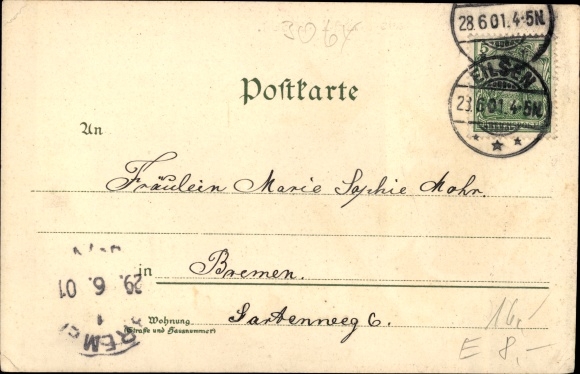 3067
28.6.01.4-5N.
Postkarte
EILSEN
28.6.01.4-5N.
An
Fräulein Marie Sophie Mohr.
in Bremen.
29.6.01
BREMEN
1
Wohnung
(Straße und Hausnummer)
Gartenweg 6.
16,-
E 8,-